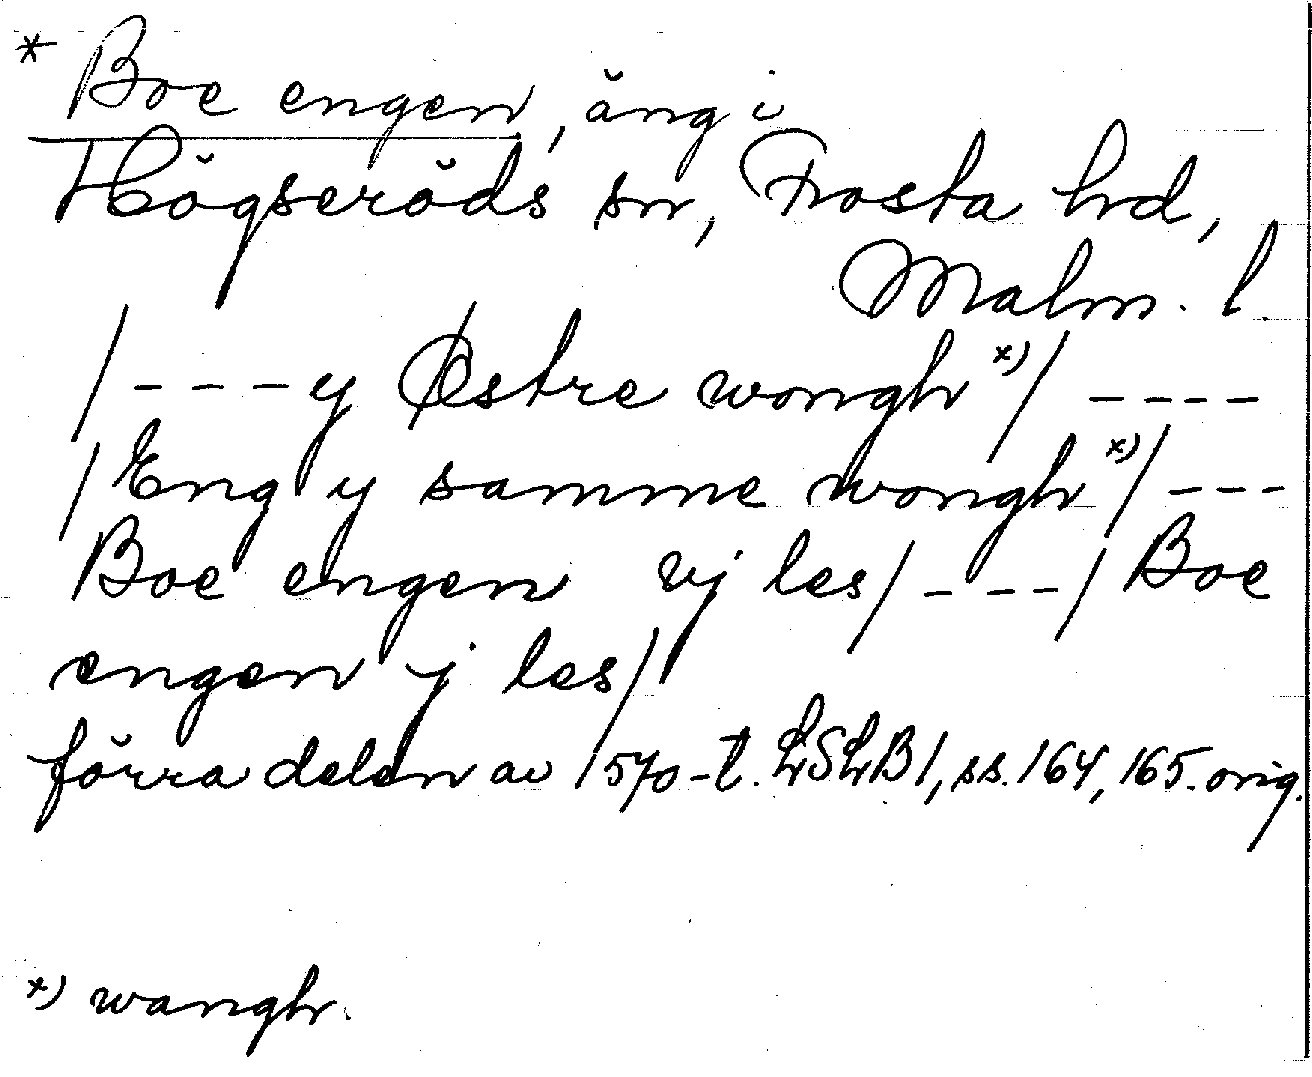 * Boe engen, äng i
Högseröds sn, Frosta hd,
Malm. l.
/ - - - y Østre wongh x) / - - - -
/ Eng y samme wongh x) / - - -
Boe engen vj les / - - - / Boe
engen j les /
förra delen av 1570-t. LSLB 1, ss. 164, 165. orig.
x) wangh.